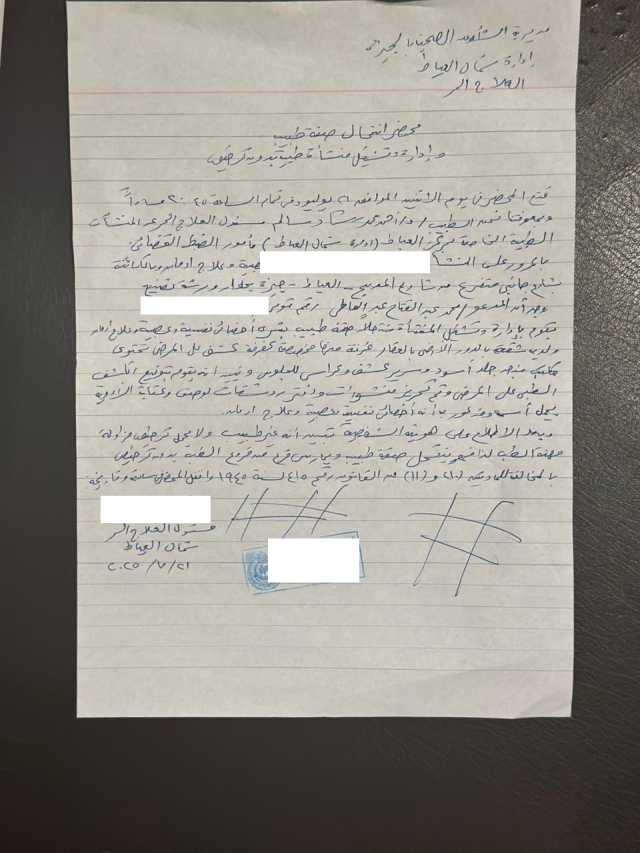 مديرية الشئون الصحية بالجيزة
إدارة شمال العياط
العلاج الحر
محضر انتحال صفة طبيب
وإدارة وتشغيل منشأة طبية بدون ترخيص
فتح المحضر في يوم الاثنين الموافق ٢١ يوليو في تمام الساعة ٢٥ مساءً
وبمعرفتنا نحن الطبيب / د/ أحمد رشاد سالم مسئول العلاج الحر على المنشآت
الطبية الخاصة بمركز العياط (إدارة شمال العياط) مأمور الضبط القضائي
بالمرور على المنشأة وعلاج ادمان وبالكائنة
بشارع جانبي متفرع من شارع - العياط - جيزة بجوار ورشة تصنيع
وجد أن المدعو / محمد عبد الفتاح عبد العاطي رقم قومي
يقوم بإدارة وتشغيل المنشأة منتحلا صفة طبيب بشري أخصائي نفسية وعصبية وعلاج ادمان
وهي شقة بالدور الأرضي بالعقار غرفة منها مخصصة كغرفة كشف على المرضى تحتوي
مكتب جلد أسود وسرير كشف وكراسي للجلوس وتبين انه يقوم بتوقيع الكشف
الطبي على المرضى وتم تحريز منشورات ودفتر روشتات
يحمل اسمه بأنه أخصائي نفسية وعصبية وعلاج ادمان.
وبعد الاطلاع على هويته الشخصية تبين أنه غير طبيب ولا يحمل ترخيص مزاولة
مهنة الطب لذا فهو ينتحل صفة طبيب ويمارس فرع من فروع الطب بدون ترخيص
بالمخالفة للمادتين (١٠) و (١١) من القانون رقم ٤١٥ لسنة ١٩٥٤ واقفل المحضر ساعته وتاريخه
مسئول العلاج الحر
شمال العياط
٢٠٢٥/٧/٢١